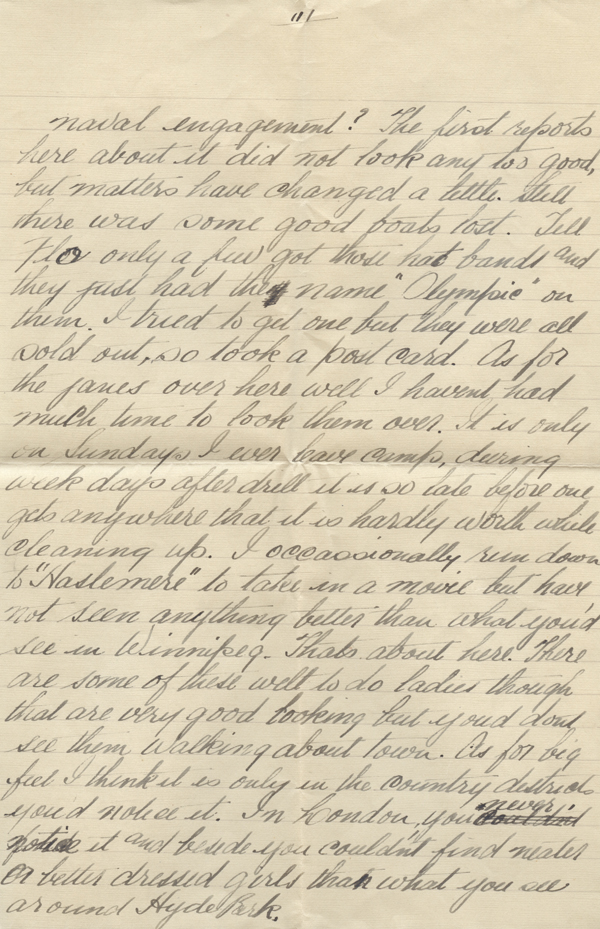 111
naval engagement? The first reports
here about it did not look any too good,
but matters have changed a little. Still
there was some good boats lost. Tell
Flo only a few got those hat bands and
they just had the name "Olympic" on
them. I tried to get one but they were all
sold out, so took a post card. As for
the janes over here well I havent had
much time to look them over. It is only
on Sundays I ever leave camp, during
week days after drill it is so late before one
gets anywhere that it is hardly worth while
cleaning up. I occassionally run down
to "Haslemere" to take in a movie but have
not seen anything better than what you'd
see in Winnipeg. Thats about here. There
are some of these well to do ladies though
that are very good looking but you'd dont
see them walking about town. As for big
feet I think it is only in the country districts
you'd notice it. In London, you never
notice it and beside you couldn't find neater
or better dressed girls than what you see
around Hyde Park.